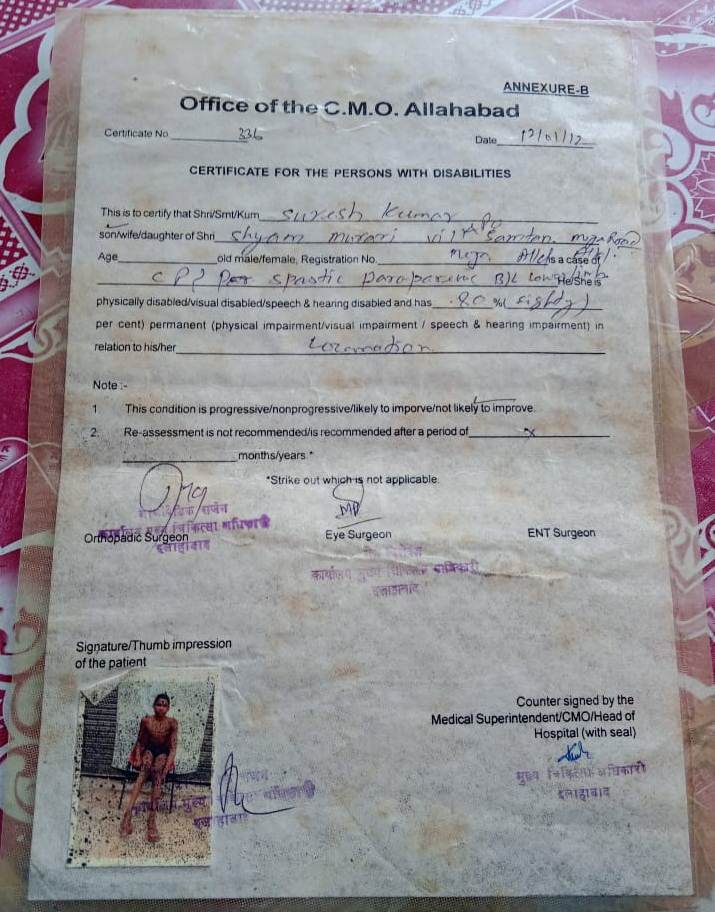 ANNEXURE-B
Office of the C.M.O. Allahabad
Certificate No 336 Date 12/01/12
CERTIFICATE FOR THE PERSONS WITH DISABILITIES
This is to certify that Shri/Smt/Kum Suresh Kumar
son/wife/daughter of Shri Shyam murari vill samhan meja Road
Age old male/female, Registration No. meja Alld is a case of
C P spastic paraparesis B/L lower limb He/She is
physically disabled/visual disabled/speech & hearing disabled and has 80 %( eighty )
per cent) permanent (physical impairment/visual impairment / speech & hearing impairment) in
relation to his/her Locomotion
Note :-
1 This condition is progressive/nonprogressive/likely to imporve/not likely to improve.
2. Re-assessment is not recommended/is recommended after a period of x
months/years.*
*Strike out which is not applicable.
सर्जन
कार्यालय मुख्य चिकित्सा अधिकारी
इलाहाबाद
Orthopadic Surgeon Eye Surgeon ENT Surgeon
कार्यालय मुख्य चिकित्सा अधिकारी
इलाहाबाद
Signature/Thumb impression
of the patient
Counter signed by the
Medical Superintendent/CMO/Head of
Hospital (with seal)
मुख्य चिकित्सा अधिकारी
इलाहाबाद
सर्जन
कार्यालय मुख्य चिकित्सा अधिकारी
इलाहाबाद